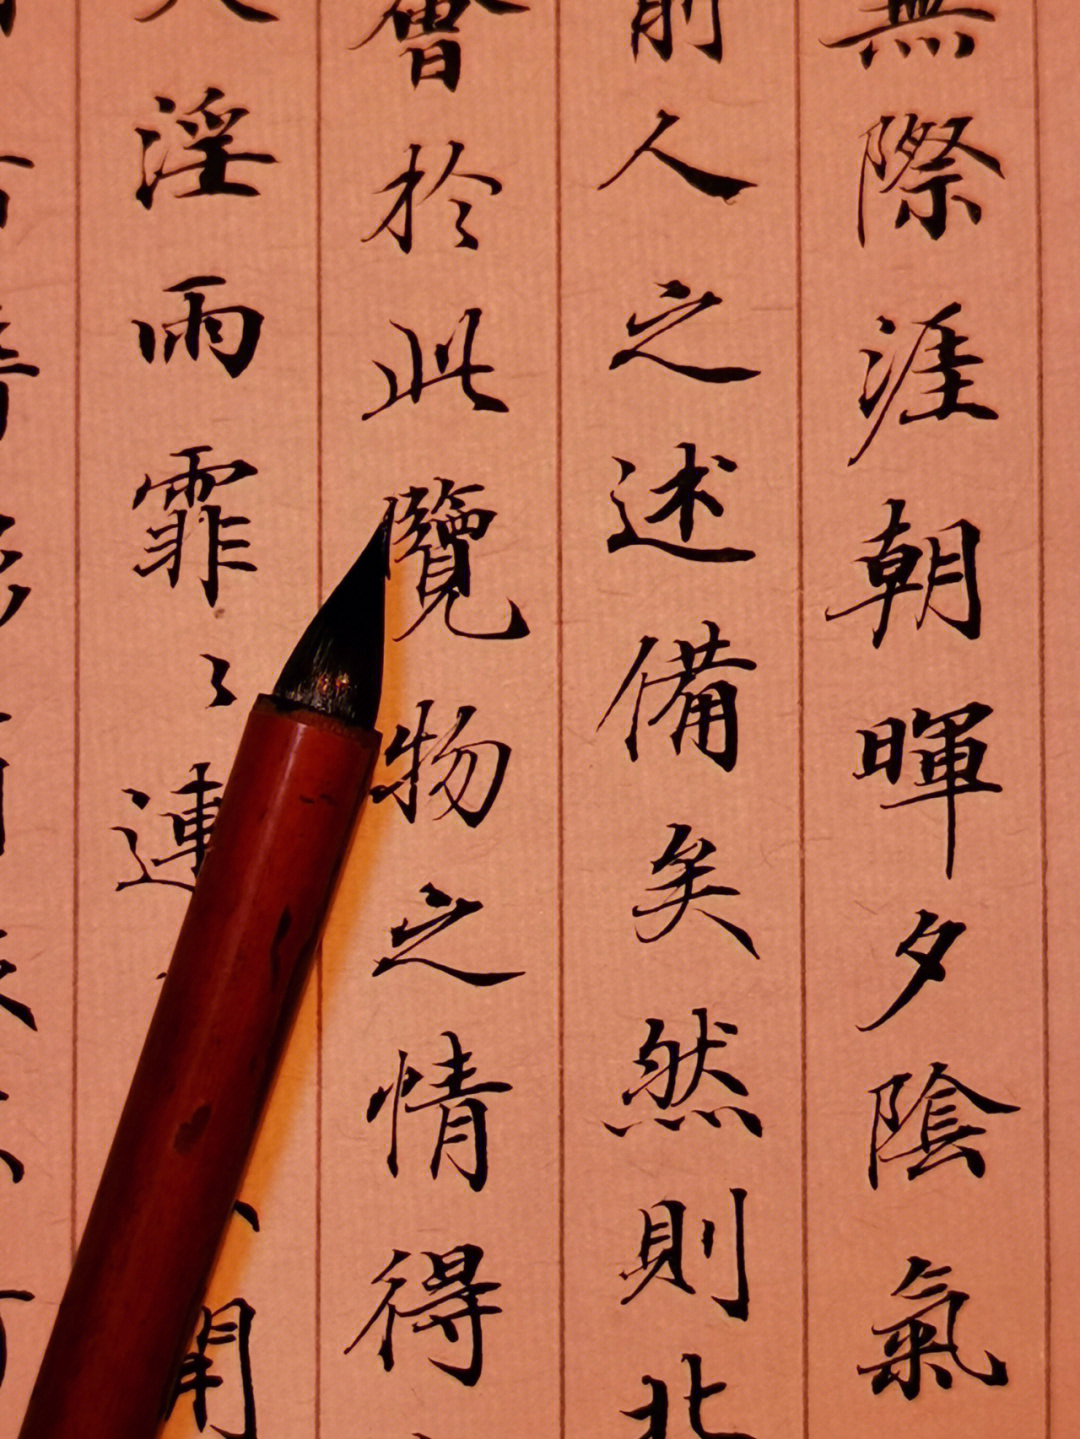 無際涯朝暉夕陰氣
前人之述備矣然則北
會於此覽物之情得
淫雨霏〻連開